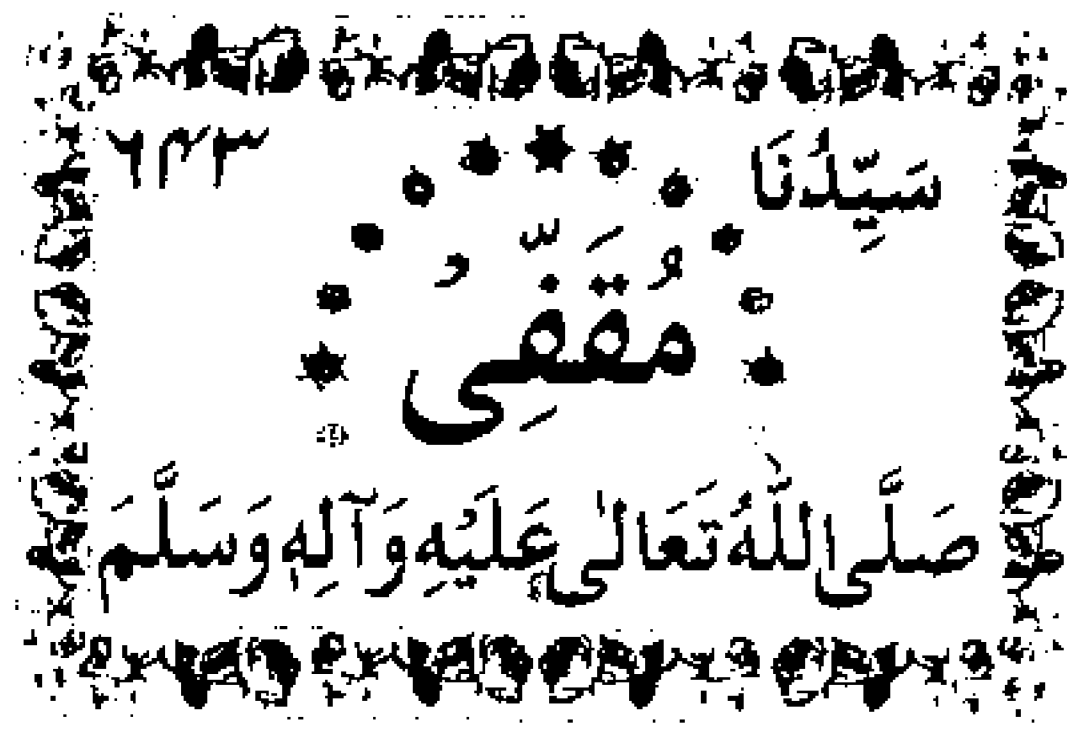 سَيِّدُنَا ٦۴٣
مُقَفِّىْ
صَلَّى اللّٰهُ تَعَالٰى عَلَيْهِ وَآلِهٖ وَسَلَّمَ